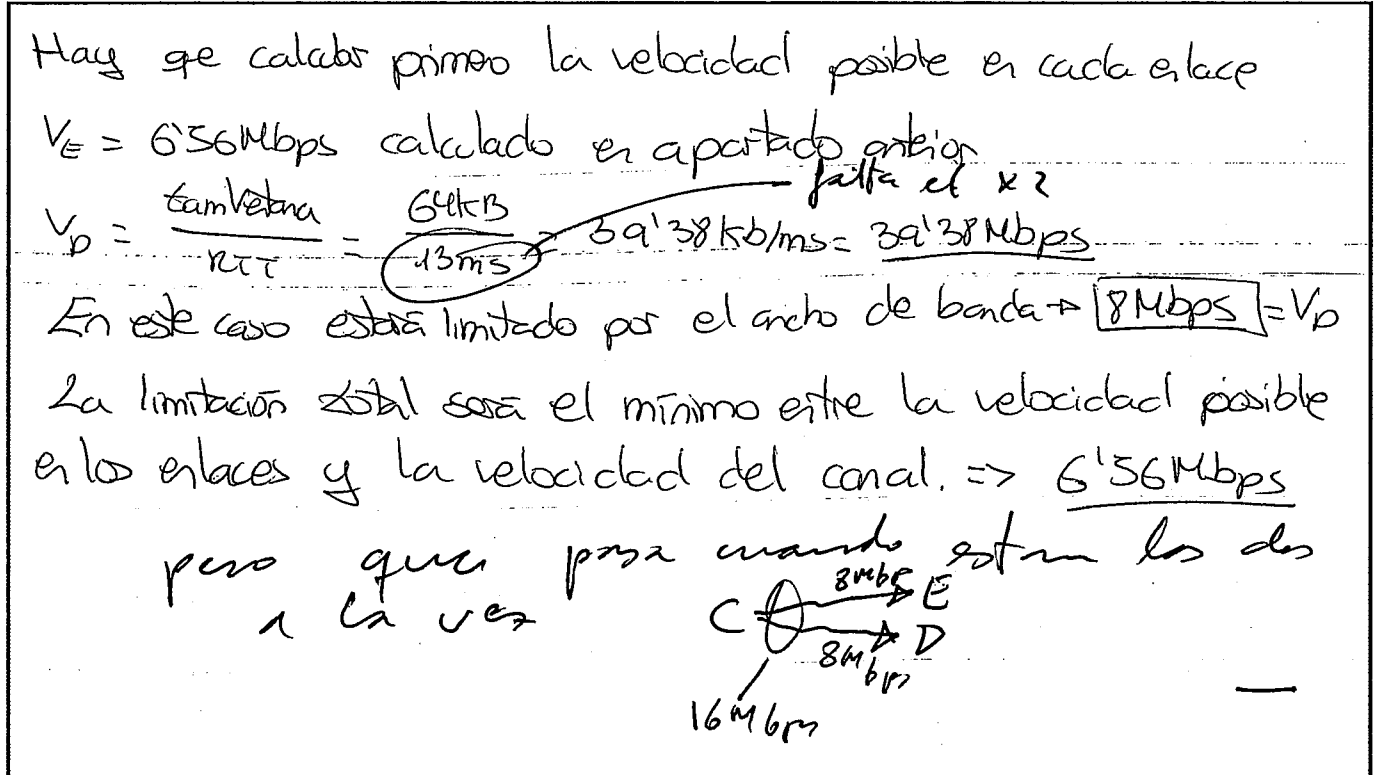 Hay que calcular primero la velocidad posible en cada enlace
V_E = 6'56Mbps calculado en apartado anterior
falta el x2
V_D = tamVentana / RTT = 64KB / 13ms = 39'38 kb/ms = 39'38 Mbps
En este caso estará limitado por el ancho de banda → 8Mbps = V_D
La limitación total será el mínimo entre la velocidad posible
en los enlaces y la velocidad del canal. => 6'56Mbps
pero que pasa cuando estan los dos
a la vez
C 8Mbps E
8Mbps D
16Mbps